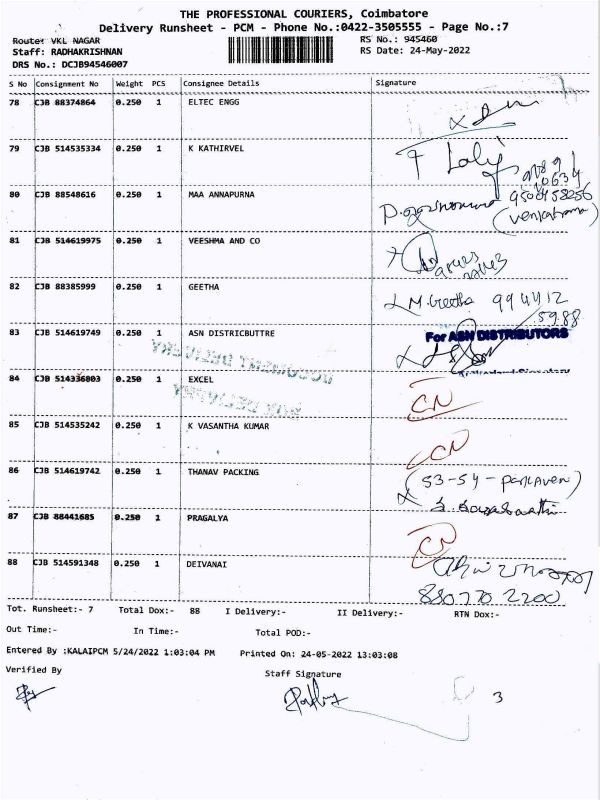 THE PROFESSIONAL COURIERS, Coimbatore
Delivery Runsheet - PCM - Phone No.:0422-3505555 - Page No.:7
Route: VKL NAGAR
RS No.: 945460
Staff: RADHAKRISHNAN
RS Date: 24-May-2022
DRS No.: DCJB94546007
S No Consignment No Weight PCS Consignee Details Signature
78 CJB 88374864 0.250 1 ELTEC ENGG
79 CJB 514535334 0.250 1 K KATHIRVEL
80 CJB 88548616 0.250 1 MAA ANNAPURNA
9508458256
81 CJB 514619975 0.250 1 VEESHMA AND CO
82 CJB 88385999 0.250 1 GEETHA M. Geetha 994412
5988
83 CJB 514619749 0.250 1 ASN DISTRICBUTTRE For ASN DISTRIBUTORS
DOCUMENT DELIVERY
84 CJB 514336803 0.250 1 EXCEL CN
BOX DELIVERY
85 CJB 514535242 0.250 1 K VASANTHA KUMAR CN
86 CJB 514619742 0.250 1 THANAV PACKING (53-54-
87 CJB 88441685 0.250 1 PRAGALYA CN
88 CJB 514591348 0.250 1 DEIVANAI
880770 2200
Tot. Runsheet:- 7 Total Dox:- 88 I Delivery:- II Delivery:- RTN Dox:-
Out Time:- In Time:- Total POD:-
Entered By :KALAIPCM 5/24/2022 1:03:04 PM Printed On: 24-05-2022 13:03:08
Verified By Staff Signature
3